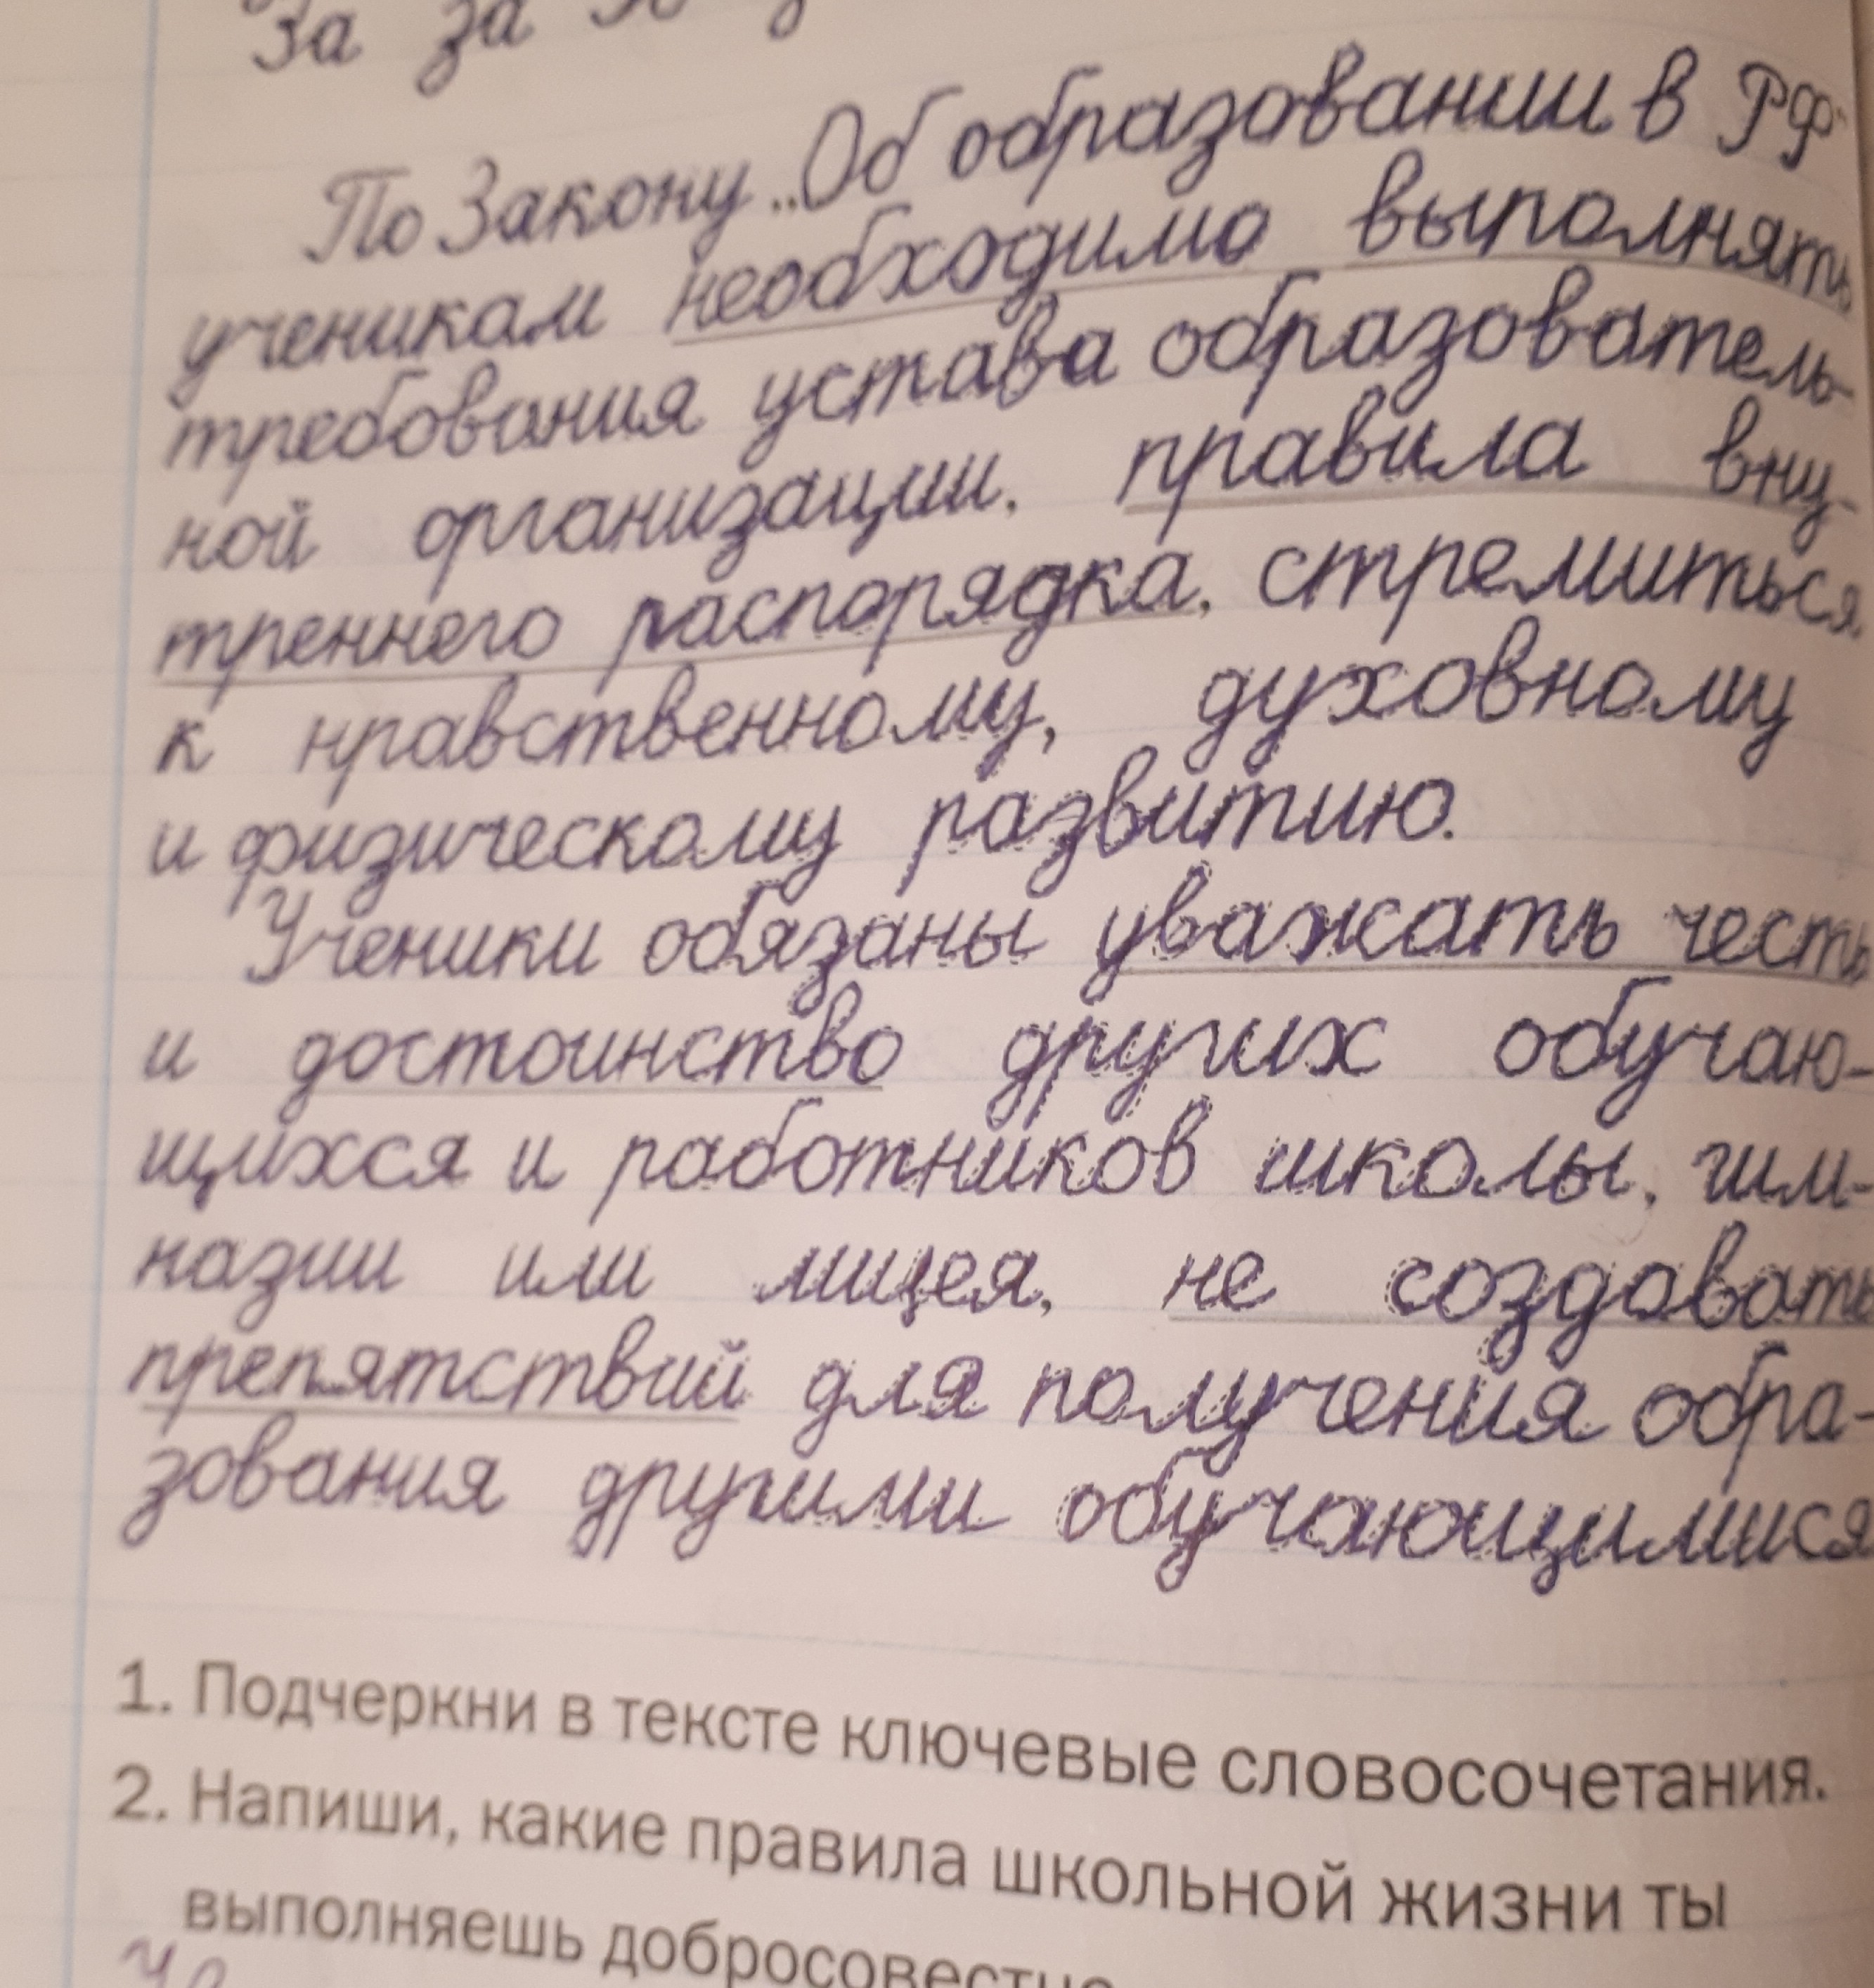 За за
По Закону „Об образовании в РФ
ученикам необходимо выполнять
требования устава образователь-
ной организации, правила вну-
треннего распорядка, стремиться
к нравственному, духовному
и физическому развитию.
Ученики обязаны уважать честь
и достоинство других обучаю-
щихся и работников школы, гим-
назии или лицея, не создавать
препятствий для получения обра-
зования другими обучающимися
1. Подчеркни в тексте ключевые словосочетания.
2. Напиши, какие правила школьной жизни ты
выполняешь добросовестно